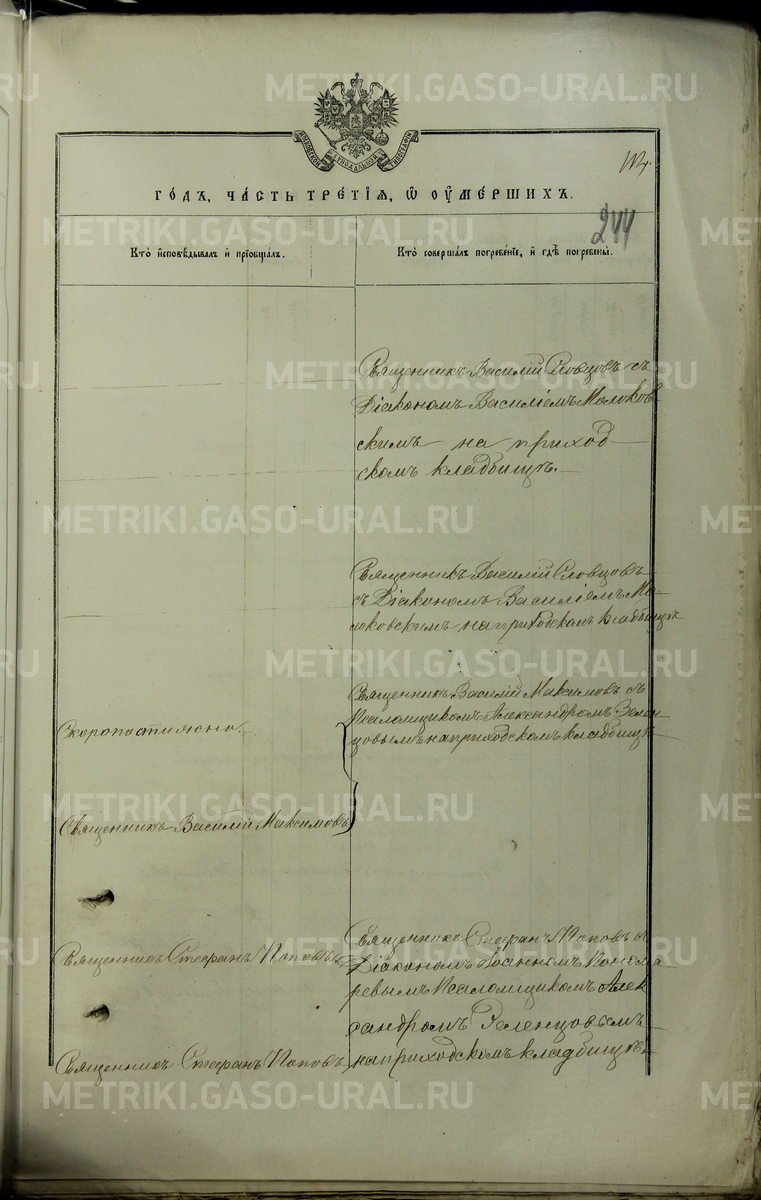 METRIKI.GASO-URAL.RU
МОСКОВСКОЙ СѴНОДАЛЬНОЙ ТИПОГРАФІИ
244
ГО́ДЪ, ЧА́СТЬ ТРЕ́ТІѦ, Ѡ ОУ҆МЕ́РШИХЪ.
Кто̀ и҆сповѣ́дывалъ и҆ прїобща́лъ.
Кто̀ соверша́лъ погребе́нїе, и҆ гдѣ̀ погребены̀.
Священникъ Василій Словцовъ съ
Діакономъ Василіемъ Молоков
скимъ на приход
скомъ кладбищѣ.
Священникъ Василій Словцовъ
съ Діакономъ Василіемъ Мо-
локовскимъ на приходскомъ кладбищѣ
Скоропостижно.
Священникъ Василій Максимовъ съ
Псаломщикомъ Александромъ Зелен
цовымъ на приходскомъ кладбищѣ
Священникъ Василій Максимовъ
Священникъ Стефанъ Поповъ
Священникъ Стефанъ Поповъ с
Діакономъ Іоанномъ Понома
ревымъ Псаломщикомъ Алек
сандромъ Зеленцовымъ
на приходскомъ кладбищѣ.
Священникъ Стефанъ Поповъ